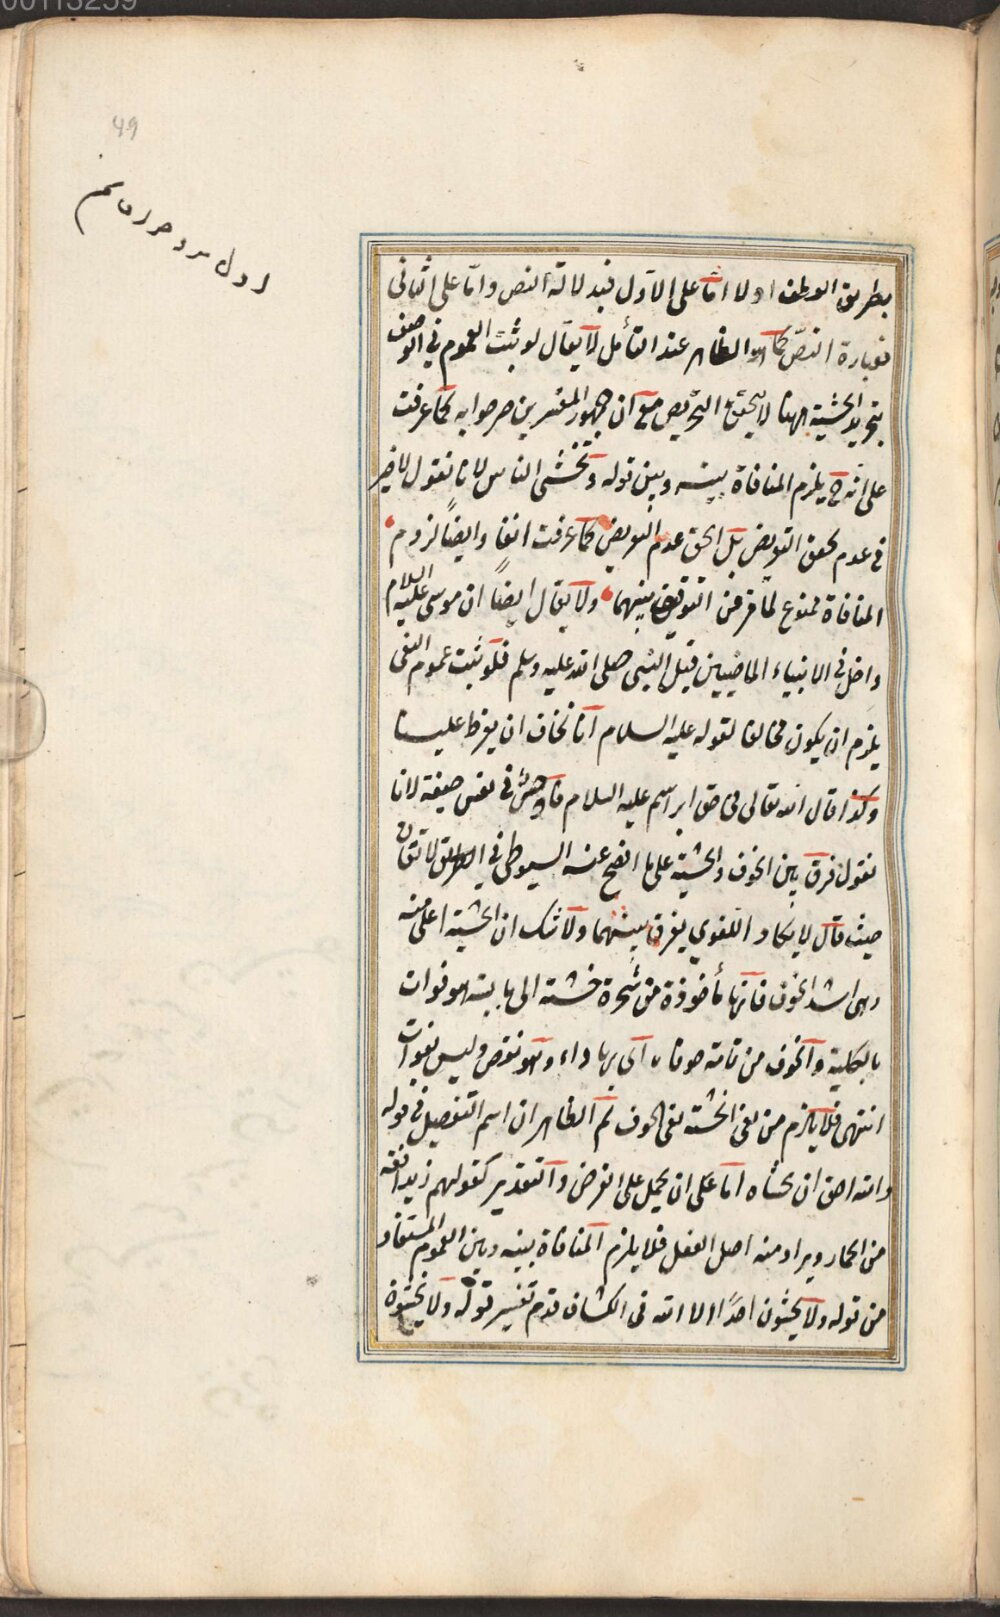 00113259
49
بطريق العطف اولا اما على الاول فبدلالة النص واما على الثانى
فبعبارة النص كما هو الظاهر عند التأمل لا يقال لو ثبت العموم فى الوصف
بتجريد الخشية ههنا لا يتحقق التعريض مع ان جمهور المفسرين صرحوا به كما عرفت
على انه ح يلزم المنافاة بينه وبين قوله وتخشى الناس لانا نقول لا ضير
فى عدم تحقق التعريض بل الحق عدم التعريض كما عرفت انفا وايضا لزوم
المنافاة ممنوع لما مر من التوفيق بينهما ولا يقال ايضا ان موسى عليه السلام
داخل فى الانبياء الماضيين قبل النبى صلى الله عليه وسلم فلو ثبت عموم النفى
يلزم ان يكون مخالفا لقوله عليه السلام اننا نخاف ان يفرط علينا
وكذا قال الله تعالى فى حق ابراهيم عليه السلام فاوجس فى نفسه خيفة لانا
نقول فرق بين الخوف والخشية على ما افصح عنه السيوطى فى الاتقان
حيث قال لا يكاد اللغوي يفرق بينهما ولا شك ان الخشية اعلى منه
وهى اشد الخوف فانها مأخوذة من شجرة خشية اى يابسة هو فوات
بالكلية والخوف من ناقة خوفاء اى بها داء وهو نقص وليس بفوات
انتهى فلا يلزم من نفى الخشية نفى الخوف ثم الظاهر ان اسم التفضيل فى قوله
والله احق ان تخشاه اما على ان يحمل على الفرض والتقدير كقولهم زيد افقه
من الحمار ويراد منه اصل الفعل فلا يلزم المنافاة بينه وبين العموم المستفاد
من قوله ولا يخشون احدا الا الله فى الكشاف قدم تفسير قوله ولا يخشون